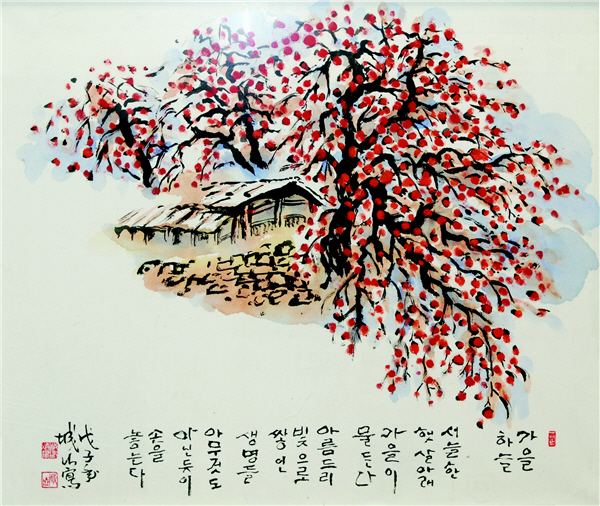 가을
하늘
서늘한
햇살아래
가을이
물든다
아름드리
빛으로
생명들
아무것도
아닌듯이
손을
놓는다
戊子
城山寫